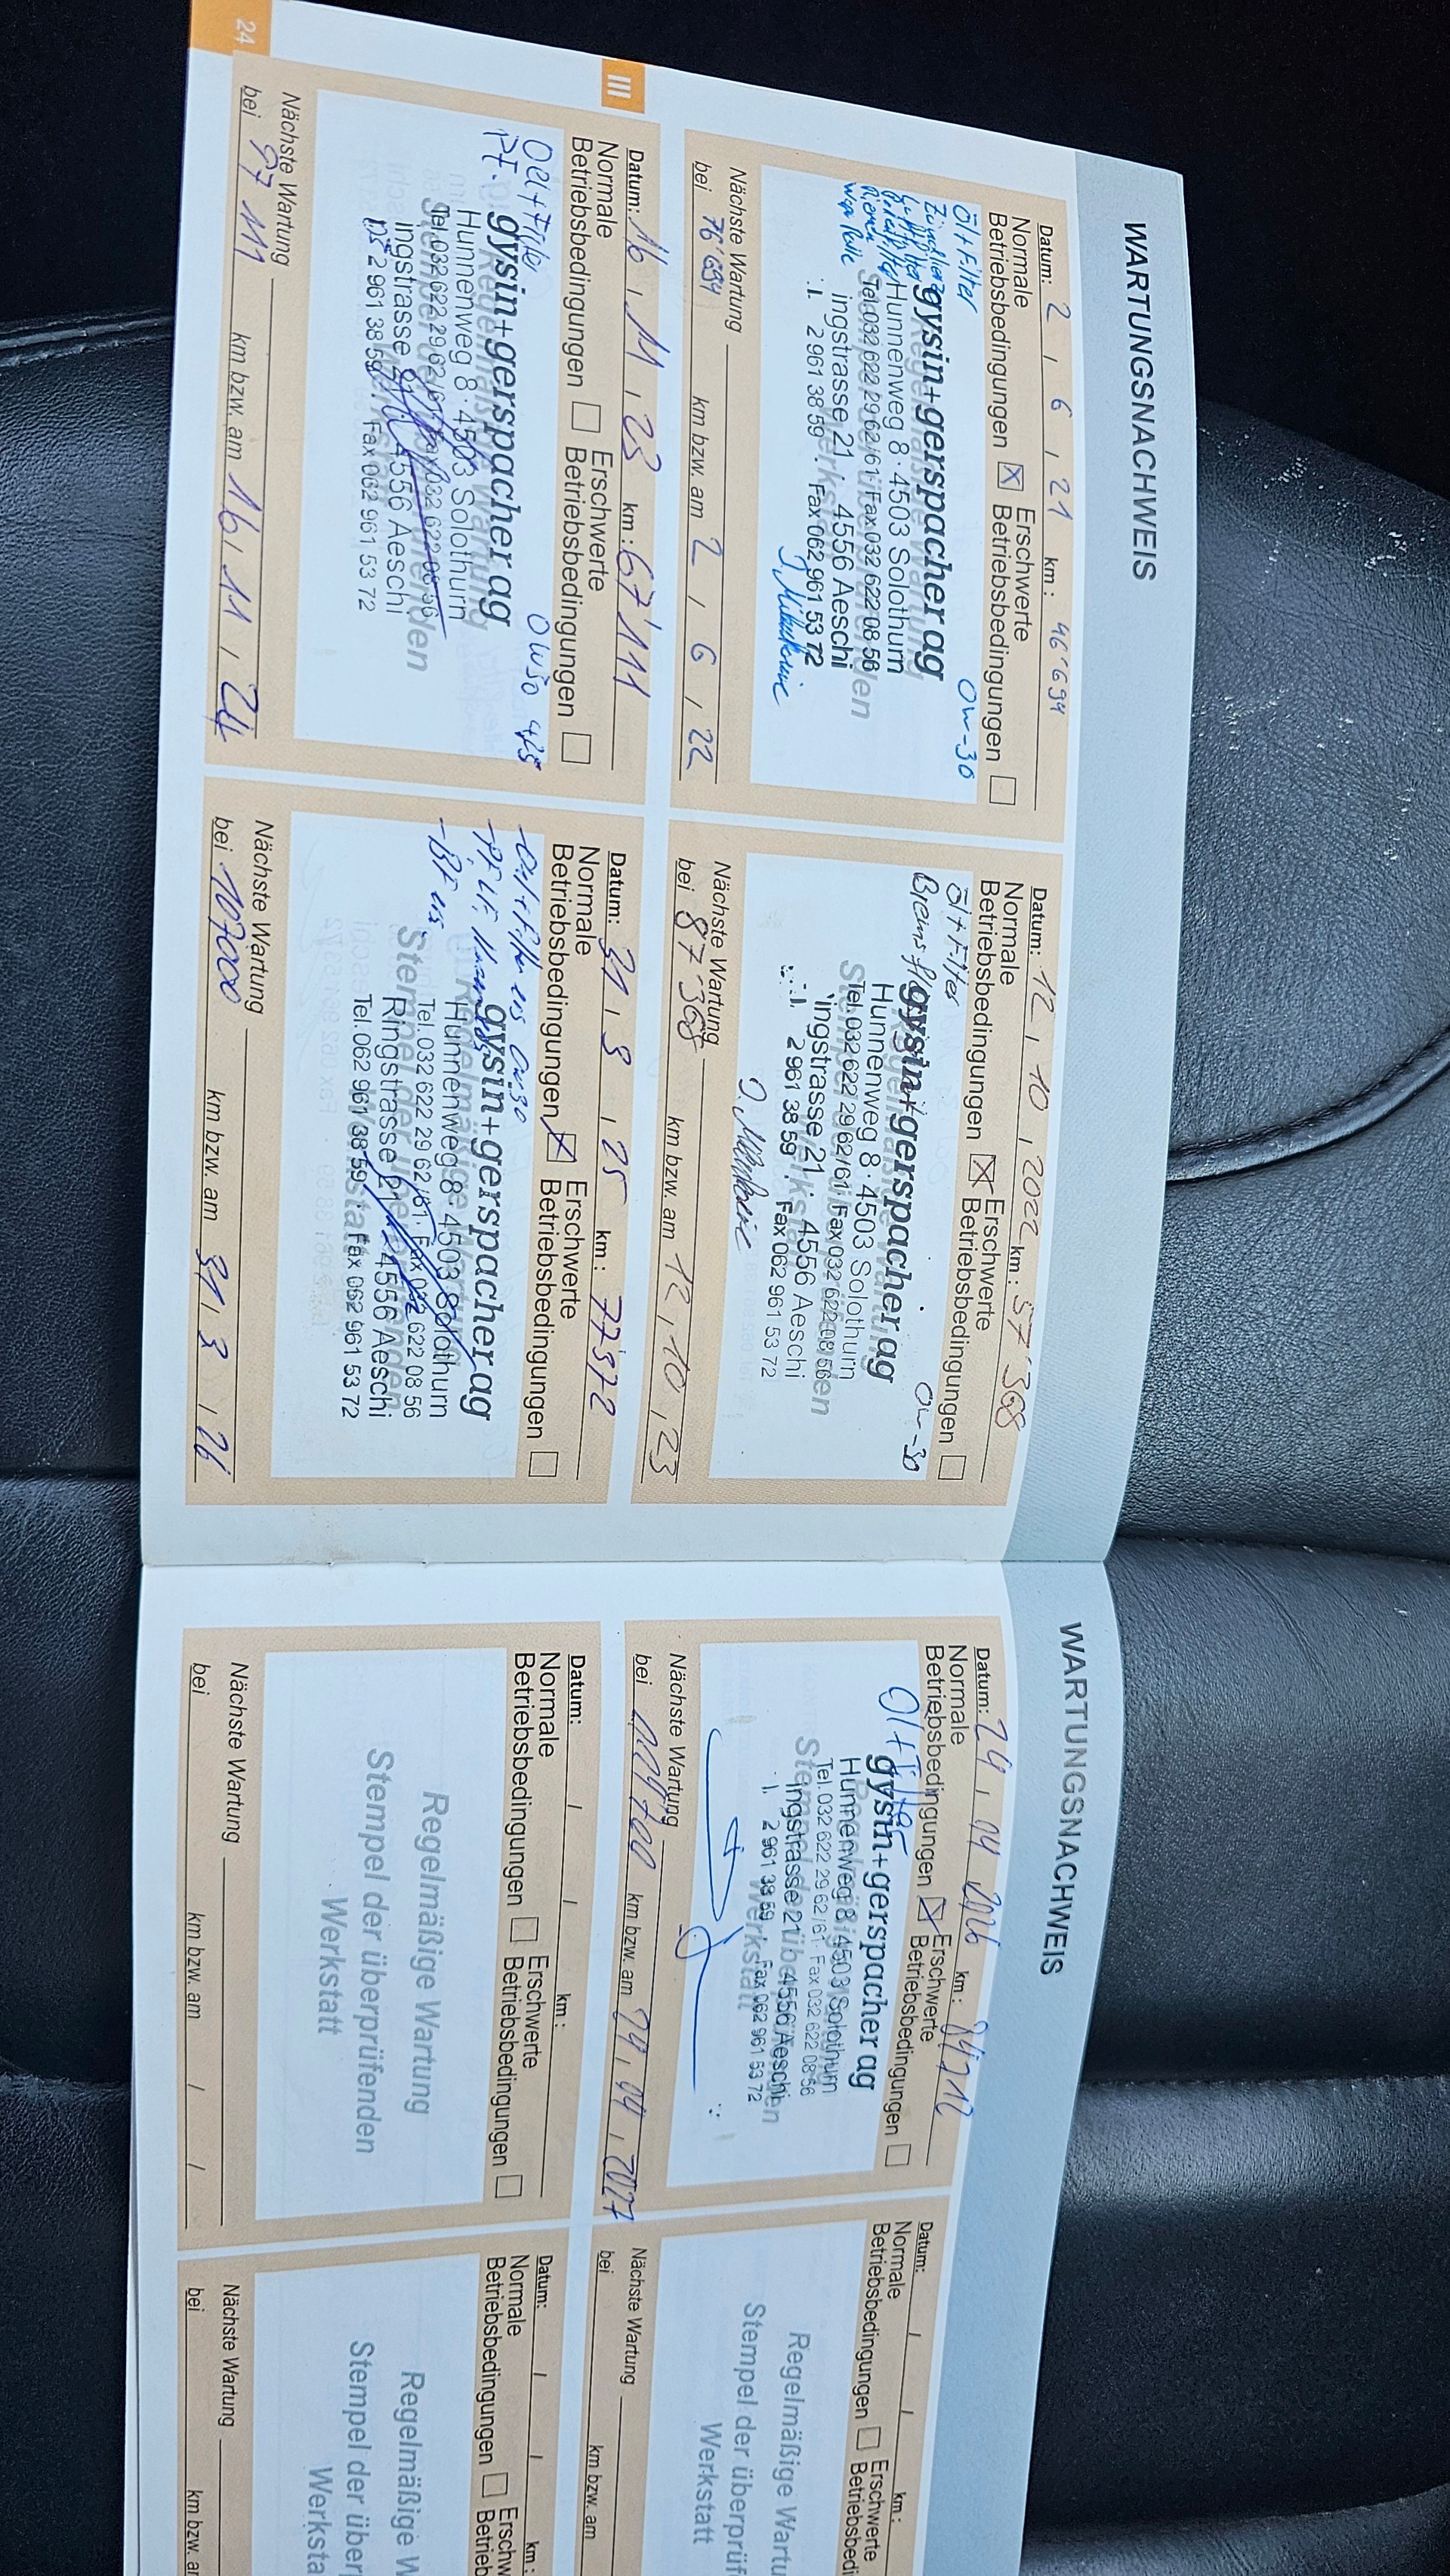 WARTUNGSNACHWEIS
Datum: 2 / 6 / 21 km: 46'694
Normale Betriebsbedingungen ☒ Erschwerte Betriebsbedingungen ☐
Öl+Filter 0W-30
gysin+gerspacher ag
Hunnenweg 8 · 4503 Solothurn
Tel. 032 622 29 62/61 · Fax 032 622 08 56
ingstrasse 21 · 4556 Aeschi
2 961 38 59 · Fax 062 961 53 72
Nächste Wartung
bei 76'694 km bzw. am 2 / 6 / 22
Datum: 12 / 10 / 2022 km: 57'368
Normale Betriebsbedingungen ☒ Erschwerte Betriebsbedingungen ☐
Öl+Filter 0W-30
gysin+gerspacher ag
Hunnenweg 8 · 4503 Solothurn
Tel. 032 622 29 62/61 Fax 032 622 08 56
ingstrasse 21 · 4556 Aeschi
2 961 38 59 · Fax 062 961 53 72
Nächste Wartung
bei 87'368 km bzw. am 12 / 10 / 23
III
Datum: 16 / 11 / 23 km: 67'111
Normale Betriebsbedingungen ☐ Erschwerte Betriebsbedingungen ☐
Oel+Filter 0W30
PF.
gysin+gerspacher ag
Hunnenweg 8 · 4503 Solothurn
Tel. 032 622 29 62/61 Fax 032 622 08 56
ingstrasse 21 · 4556 Aeschi
2 961 38 59 · Fax 062 961 53 72
Nächste Wartung
bei 97'111 km bzw. am 16 / 11 / 24
Datum: 31 / 3 / 25 km: 77'372
Normale Betriebsbedingungen ☒ Erschwerte Betriebsbedingungen ☐
-Oel+Filter ers 0W30
-BF ers.
gysin+gerspacher ag
Hunnenweg 8 · 4503 Solothurn
Tel. 032 622 29 62/61 · Fax 032 622 08 56
Ringstrasse 21 · 4556 Aeschi
Tel. 062 961 38 59 · Fax 062 961 53 72
Nächste Wartung
bei 107000 km bzw. am 31 / 3 / 26
24
WARTUNGSNACHWEIS
Datum: 24 / 04 2026 km:
Normale Betriebsbedingungen ☒ Erschwerte Betriebsbedingungen ☐
Öl+Filter
gysin+gerspacher ag
Hunnenweg 8 · 4503 Solothurn
Tel. 032 622 29 62/61 · Fax 032 622 08 56
ingstrasse 21 · 4556 Aeschi
2 961 38 59 · Fax 062 961 53 72
Nächste Wartung
bei km bzw. am 24 / 04 / 2027
Datum: / / km:
Normale Betriebsbedingungen ☐ Erschwerte Betriebsbedi
Regelmäßige Wartu
Stempel der überprüf
Werkstatt
Nächste Wartung
bei km bzw. am
Datum: / / km:
Normale Betriebsbedingungen ☐ Erschwerte Betriebsbedingungen ☐
Regelmäßige Wartung
Stempel der überprüfenden
Werkstatt
Nächste Wartung
bei km bzw. am / /
Datum: / / km:
Normale Betriebsbedingungen ☐ Erschw Betrieb
Regelmäßige W
Stempel der über
Werksta
Nächste Wartung
bei km bzw. ar